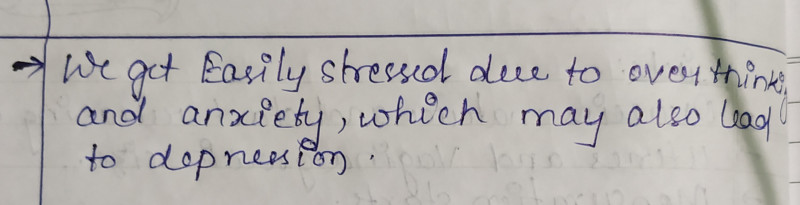 → We get Easily stressed due to overthinking
and anxiety, which may also lead
to depression.